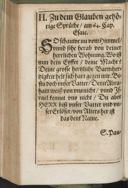 II. Zu dem Glauben gehö-
rige Sprüche / am 64. Cap.
Esai.
SO schaue nu vom Himmel /
und siehe herab von deiner
herrlichen Wohnung. Wo ist
nun dein Eyffer / deine Macht?
Deine grosse hertzliche Barmher-
tzigkeit helt sich hart gegen mir. Bi-
stu doch unser Vatter / Denn Abra-
ham weiß von uns nicht / und Is-
rael kennet uns nicht / Du aber
HERR bist unser Vatter und un-
ser Erlöser / von Alters her ist
das dein Name.
S. Pau-